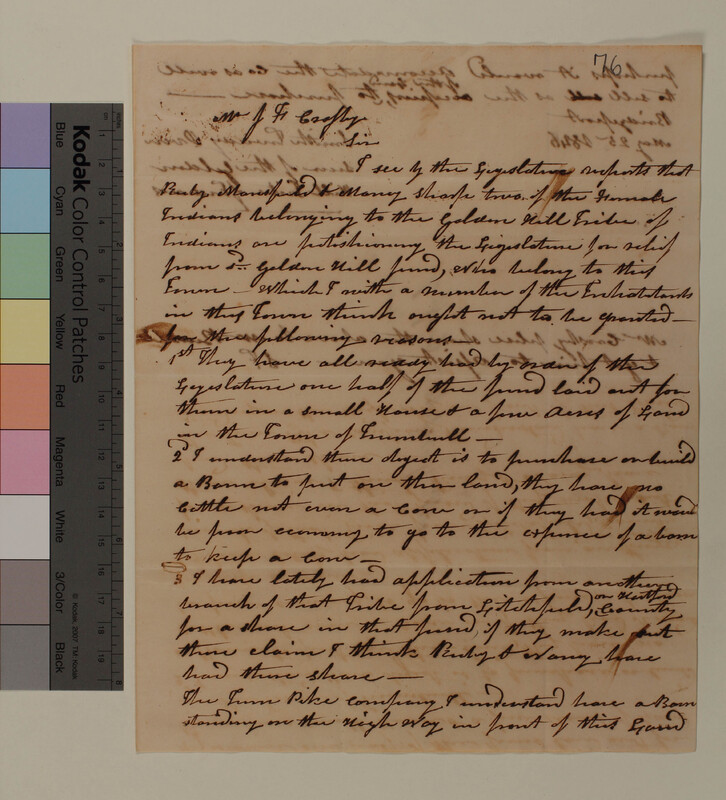 76
Mr J F Crosby
Sir
I see by the Legislature reports that
Ruby Mansfield & Nancy Sharpe two of the Female
Indians belonging to the Golden Hill Tribe of
Indians are petishioning the Legislature for relief
from sd. Golden Hill fund, who belong to this
Town – Which I with a number of the Inhabitants
in this Town think ought not to be granted –
for the following reasons –
1st They have all ready had by order of the
Legeslature one half of the fund laid out for
them in a small House & a few Acres of Land
in the Town of Trumbull –
2d I understand there object is to purchase or build
a Barn to put on there land, they have no
Cattle not even a Cow or if they had it would
be poor economy to go to the expence of a barn
to keep a Cow –
3 I have lately had application from another
branch of that Tribe from Litchfield, or Hartford County
for a share in that fund, if they make out
there claim I think Ruby & Nancy have
had there share –
The Turn Pike Company I understand have a Barn
standing on the High Way in front of this Land
Kodak Color Control Patches
Blue
Cyan
Green
Yellow
Red
Magenta
White
3/Color
Black
© Kodak, 2007 TM: Kodak